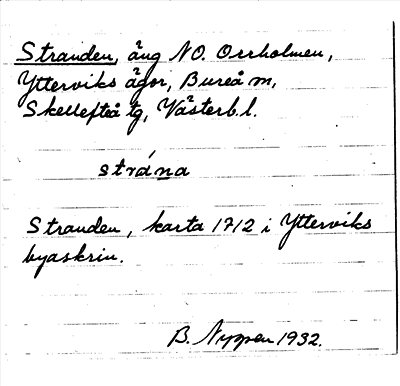 Stranden, äng NO. Orrholmen,
Ytterviks ägor, Bureå m,
Skellefteå tg, Västerb. l.
strána
Stranden, karta 1712 i Ytterviks
byaskrin.
B. Nyman 1932.